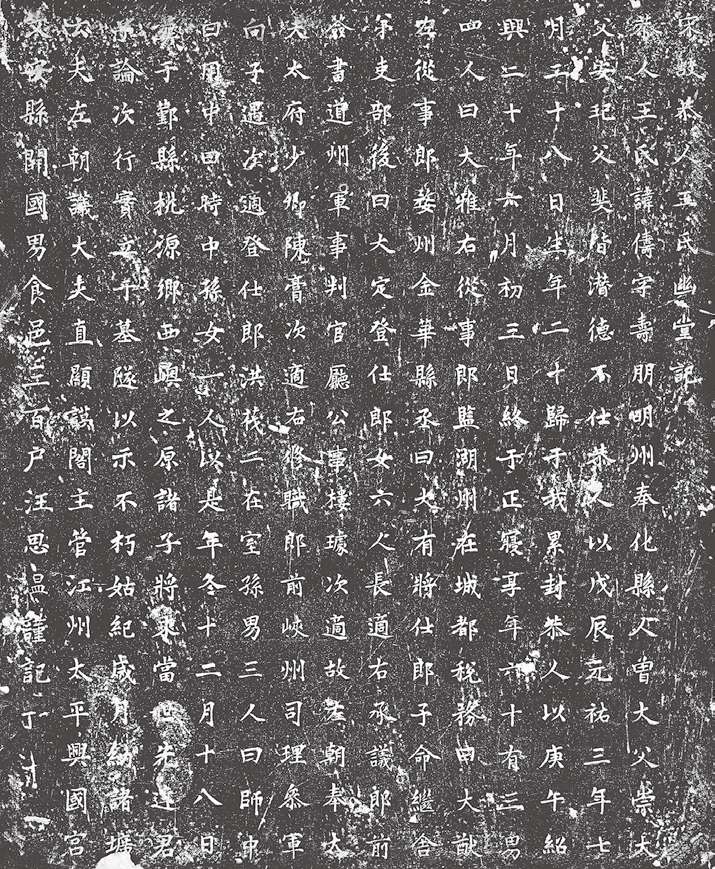 宋故恭人王氏幽堂記
恭人王氏諱儔字壽朋明州奉化縣人曾大父崇大
父安玘父斐皆潛德不仕恭人以戊辰元祐三年七
月三十八日生年二十歸于我累封恭人以庚午紹
興二十年六月初三日終于正寢享年六十有三男
四人曰大雅右從事郎監湖州在城都稅務曰大猷
右從事郎婺州金華縣丞曰大有將仕郎子命繼舍
弟吏部後曰大定登仕郎女六人長適右承議郎前
簽書道州軍事判官廳公事樓璩次適故左朝奉大
夫太府少卿陳膏次適右修職郎前峽州司理參軍
向子遇次適登仕郎洪茷二在室孫男三人曰師中
曰用中曰時中孫女一人以是年冬十二月十八日
葬于鄞縣桃源鄉西嶼之原諸子將求當世先達君
子論次行實立于墓隧以示不朽姑紀歲月納諸壙
云夫左朝議大夫直顯謨閣主管江州太平興國宮
文安縣開國男食邑三百户汪思溫謹記